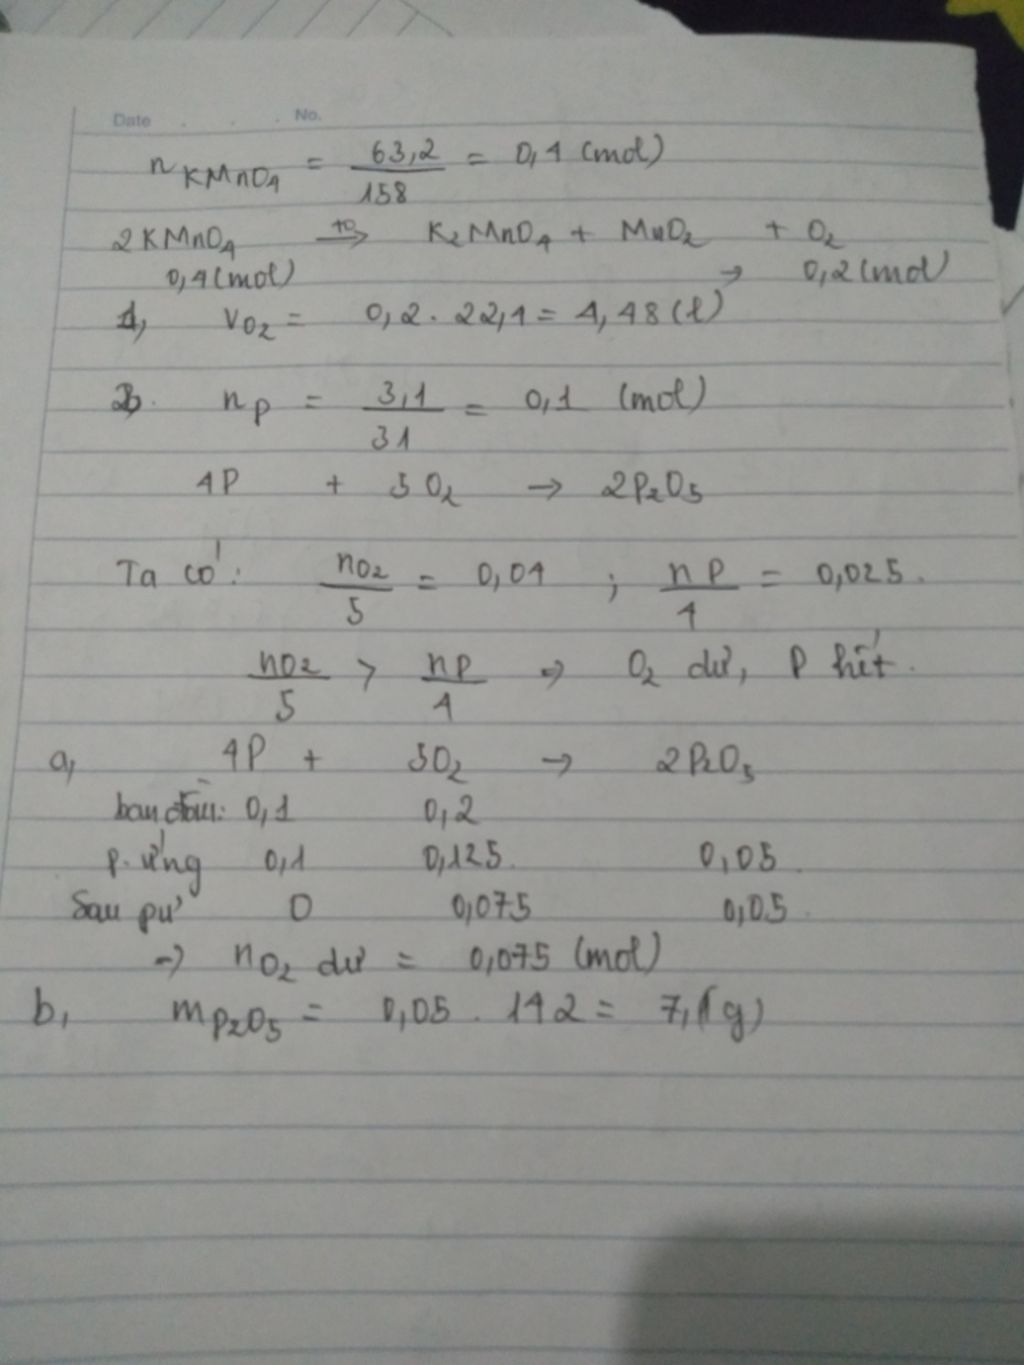 Date . . . No.
n KMnO4 = 63,2 / 158 = 0,4 (mol)
2KMnO4 t0→ K2MnO4 + MnO2 + O2
0,4(mol) → 0,2(mol)
1, VO2 = 0,2 . 22,4 = 4,48 (l)
2. nP = 3,1 / 31 = 0,1 (mol)
4P + 5O2 → 2P2O5
Ta có: nO2 / 5 = 0,04 ; nP / 4 = 0,025.
nO2 / 5 > nP / 4 => O2 dư, P hết.
a, 4P + 5O2 → 2P2O5
ban đầu: 0,1 0,2
p. ứng 0,1 0,125. 0,05.
Sau pư 0 0,075 0,05.
=> nO2 dư = 0,075 (mol)
b, mP2O5 = 0,05 . 142 = 7,1(g)